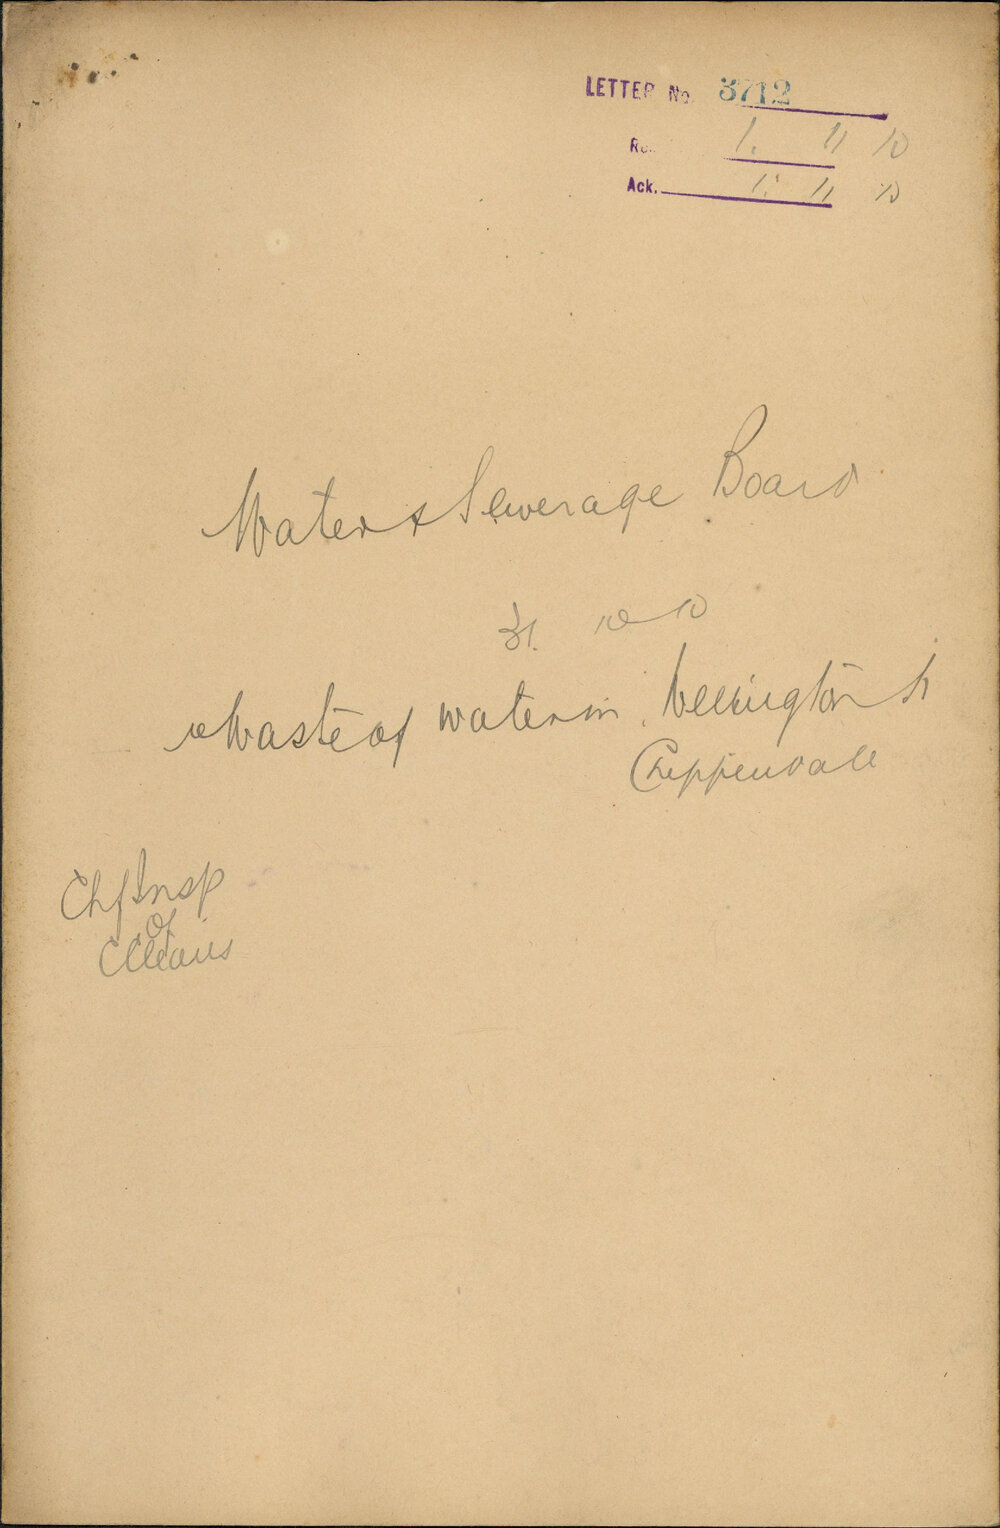 LETTER No. 3712
Re. 1. 11 10
Ack. 1. 11 10
Water & Sewerage Board
31. 10 10
re Waste of water in Wellington St
Chippendale
Chf Insp
of
Cleans